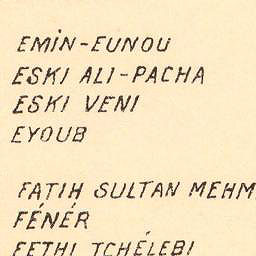 EMİN-EUNOU
ESKI ALI-PACHA
ESKI VENI
EYOUB
FATIH SULTAN MEHM
FÉNÉR
FETHI TCHÉLEBI